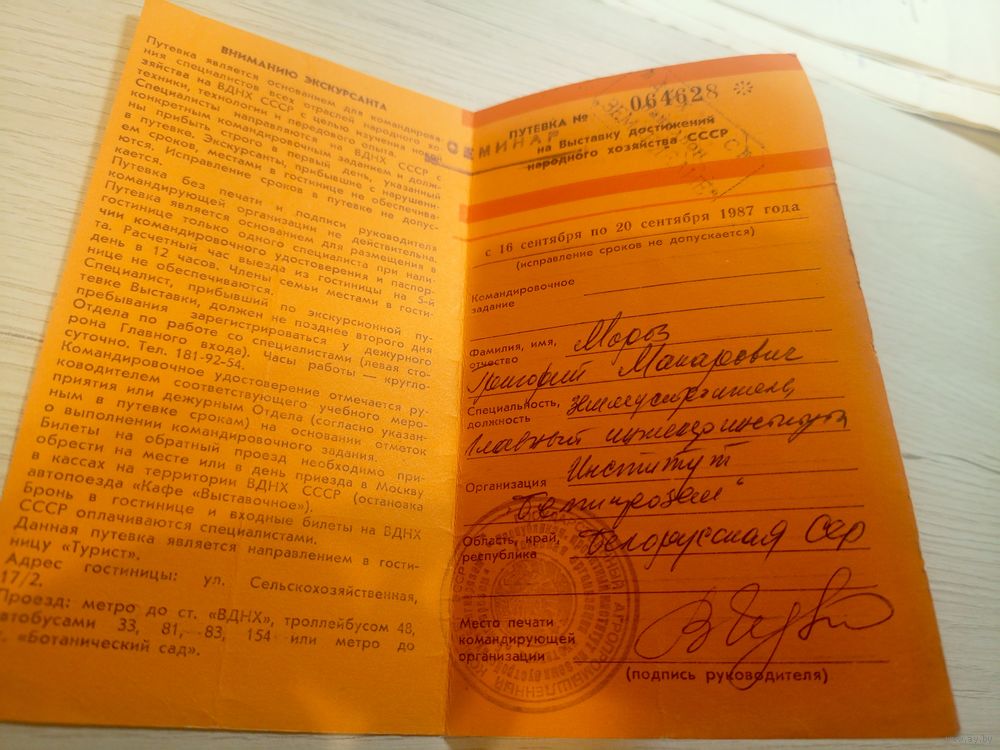 ВНИМАНИЮ ЭКСКУРСАНТА
Путевка является основанием для командирова-
ния специалистов всех отраслей народного хо-
зяйства на ВДНХ СССР с целью изучения новой
техники, технологии и передового опыта.
Специалисты направляются на ВДНХ СССР с
конкретным командировочным заданием и долж-
ны прибыть строго в первый день, указанный
в путевке. Экскурсанты, прибывшие с нарушени-
ем сроков, местами в гостинице не обеспечива-
ются. Исправление сроков в путевке не допус-
кается.
Путевка без печати и подписи руководителя
командирующей организации не действительна.
Путевка является основанием для размещения в
гостинице только одного специалиста при нали-
чии командировочного удостоверения и паспор-
та. Расчетный час выезда из гостиницы на 5-й
день в 12 часов. Члены семьи местами в гости-
нице не обеспечиваются.
Специалист, прибывший по экскурсионной пу-
тевке Выставки, должен не позднее второго дня
пребывания зарегистрироваться у дежурного
Отдела по работе со специалистами (левая сто-
рона Главного входа). Часы работы — кругло-
суточно. Тел. 181-92-54.
Командировочное удостоверение отмечается ру-
ководителем соответствующего учебного меро-
приятия или дежурным Отдела (согласно указан-
ным в путевке срокам) на основании отметок
о выполнении командировочного задания.
Билеты на обратный проезд необходимо при-
обрести на месте или в день приезда в Москву
в кассах на территории ВДНХ СССР (остановка
автопоезда «Кафе «Выставочное»).
Бронь в гостинице и входные билеты на ВДНХ
СССР оплачиваются специалистами.
Данная путевка является направлением в гости-
ницу «Турист».
Адрес гостиницы: ул. Сельскохозяйственная,
17/2.
Проезд: метро до ст. «ВДНХ», троллейбусом 48,
автобусами 33, 81, 83, 154 или метро до
«Ботанический сад».
ПУТЕВКА № 064628
СЕМИНАР
на Выставку достижений
народного хозяйства СССР
с 16 сентября по 20 сентября 1987 года
(исправление сроков не допускается)
Командировочное
задание
Фамилия, имя, Мороз
отчество
Григорий Макарович
Специальность, землеустроитель
должность
Главный инженер института
Организация Институт
"Белгипрозем"
Область, край, Белорусская ССР
республика
Место печати
командирующей
организации
(подпись руководителя)